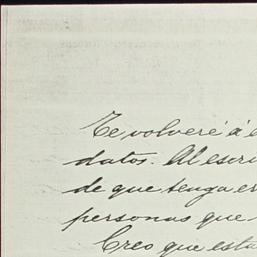 Te volveré á
datos. Al escri
de que tenga er
personas que
Creo que esta